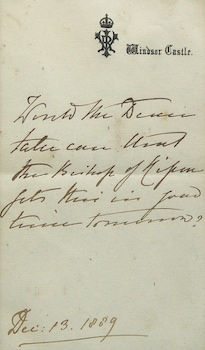 Windsor Castle.
Would the Dean
take care that
the Bishop of Ripon
gets this in good
time tomorrow?
Dec: 13. 1889